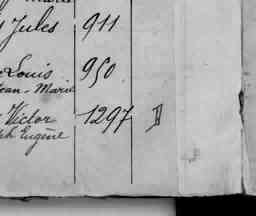 Jules 911
Louis 950
Jean-Marie
Victor 1297
Eugène